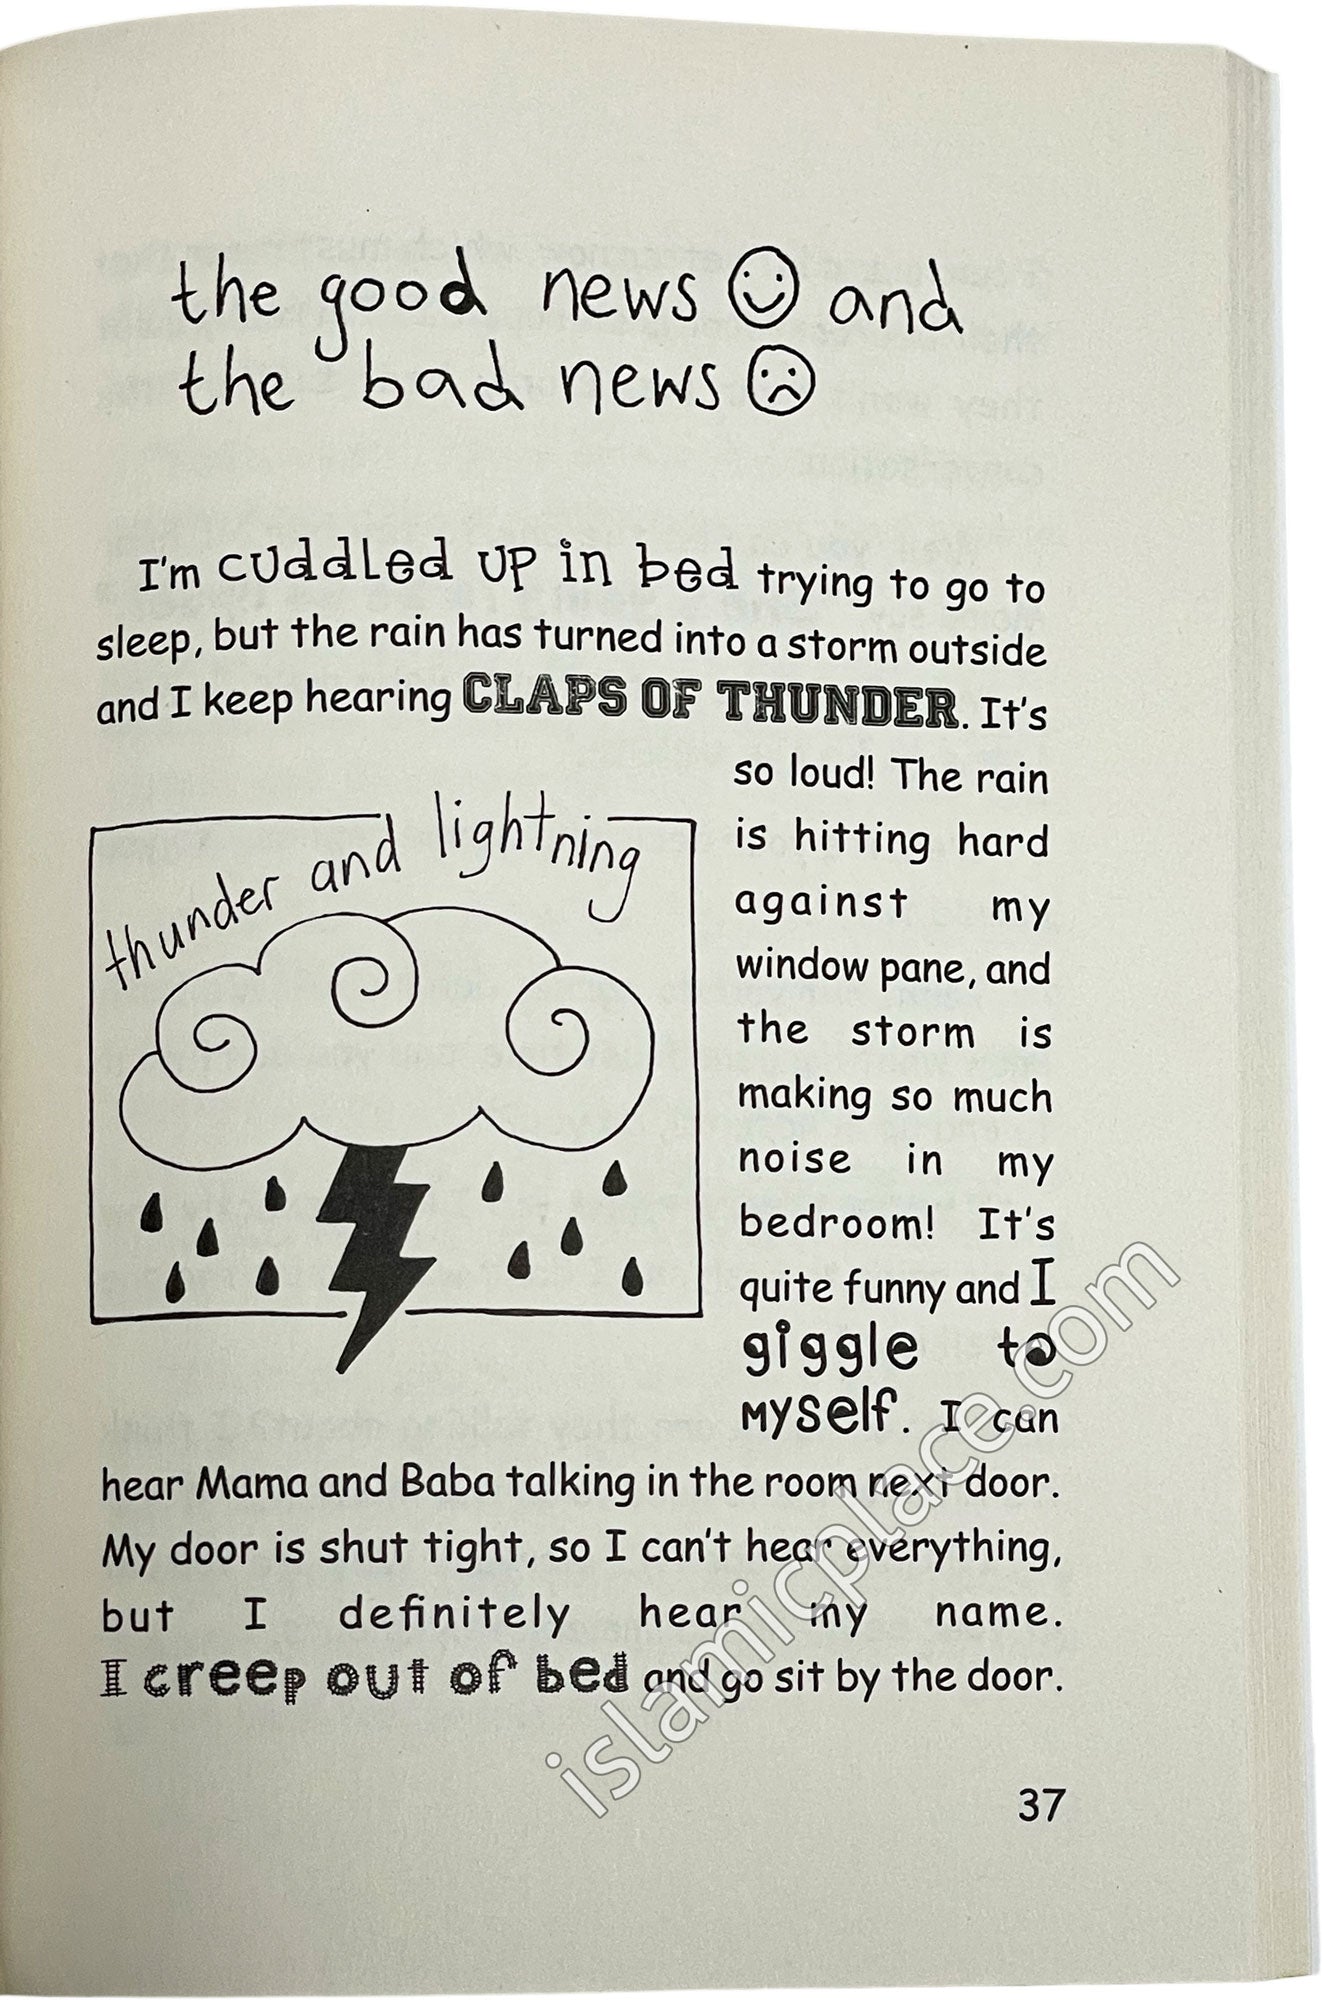 the good news and
the bad news
I'm cuddled up in bed trying to go to
sleep, but the rain has turned into a storm outside
and I keep hearing CLAPS OF THUNDER. It's
so loud! The rain
is hitting hard
against my
window pane, and
the storm is
making so much
noise in my
bedroom! It's
quite funny and I
giggle to
myself. I can
thunder and lightning
hear Mama and Baba talking in the room next door.
My door is shut tight, so I can't hear everything,
but I definitely hear my name.
I creep out of bed and go sit by the door.
37
islamicplace.com